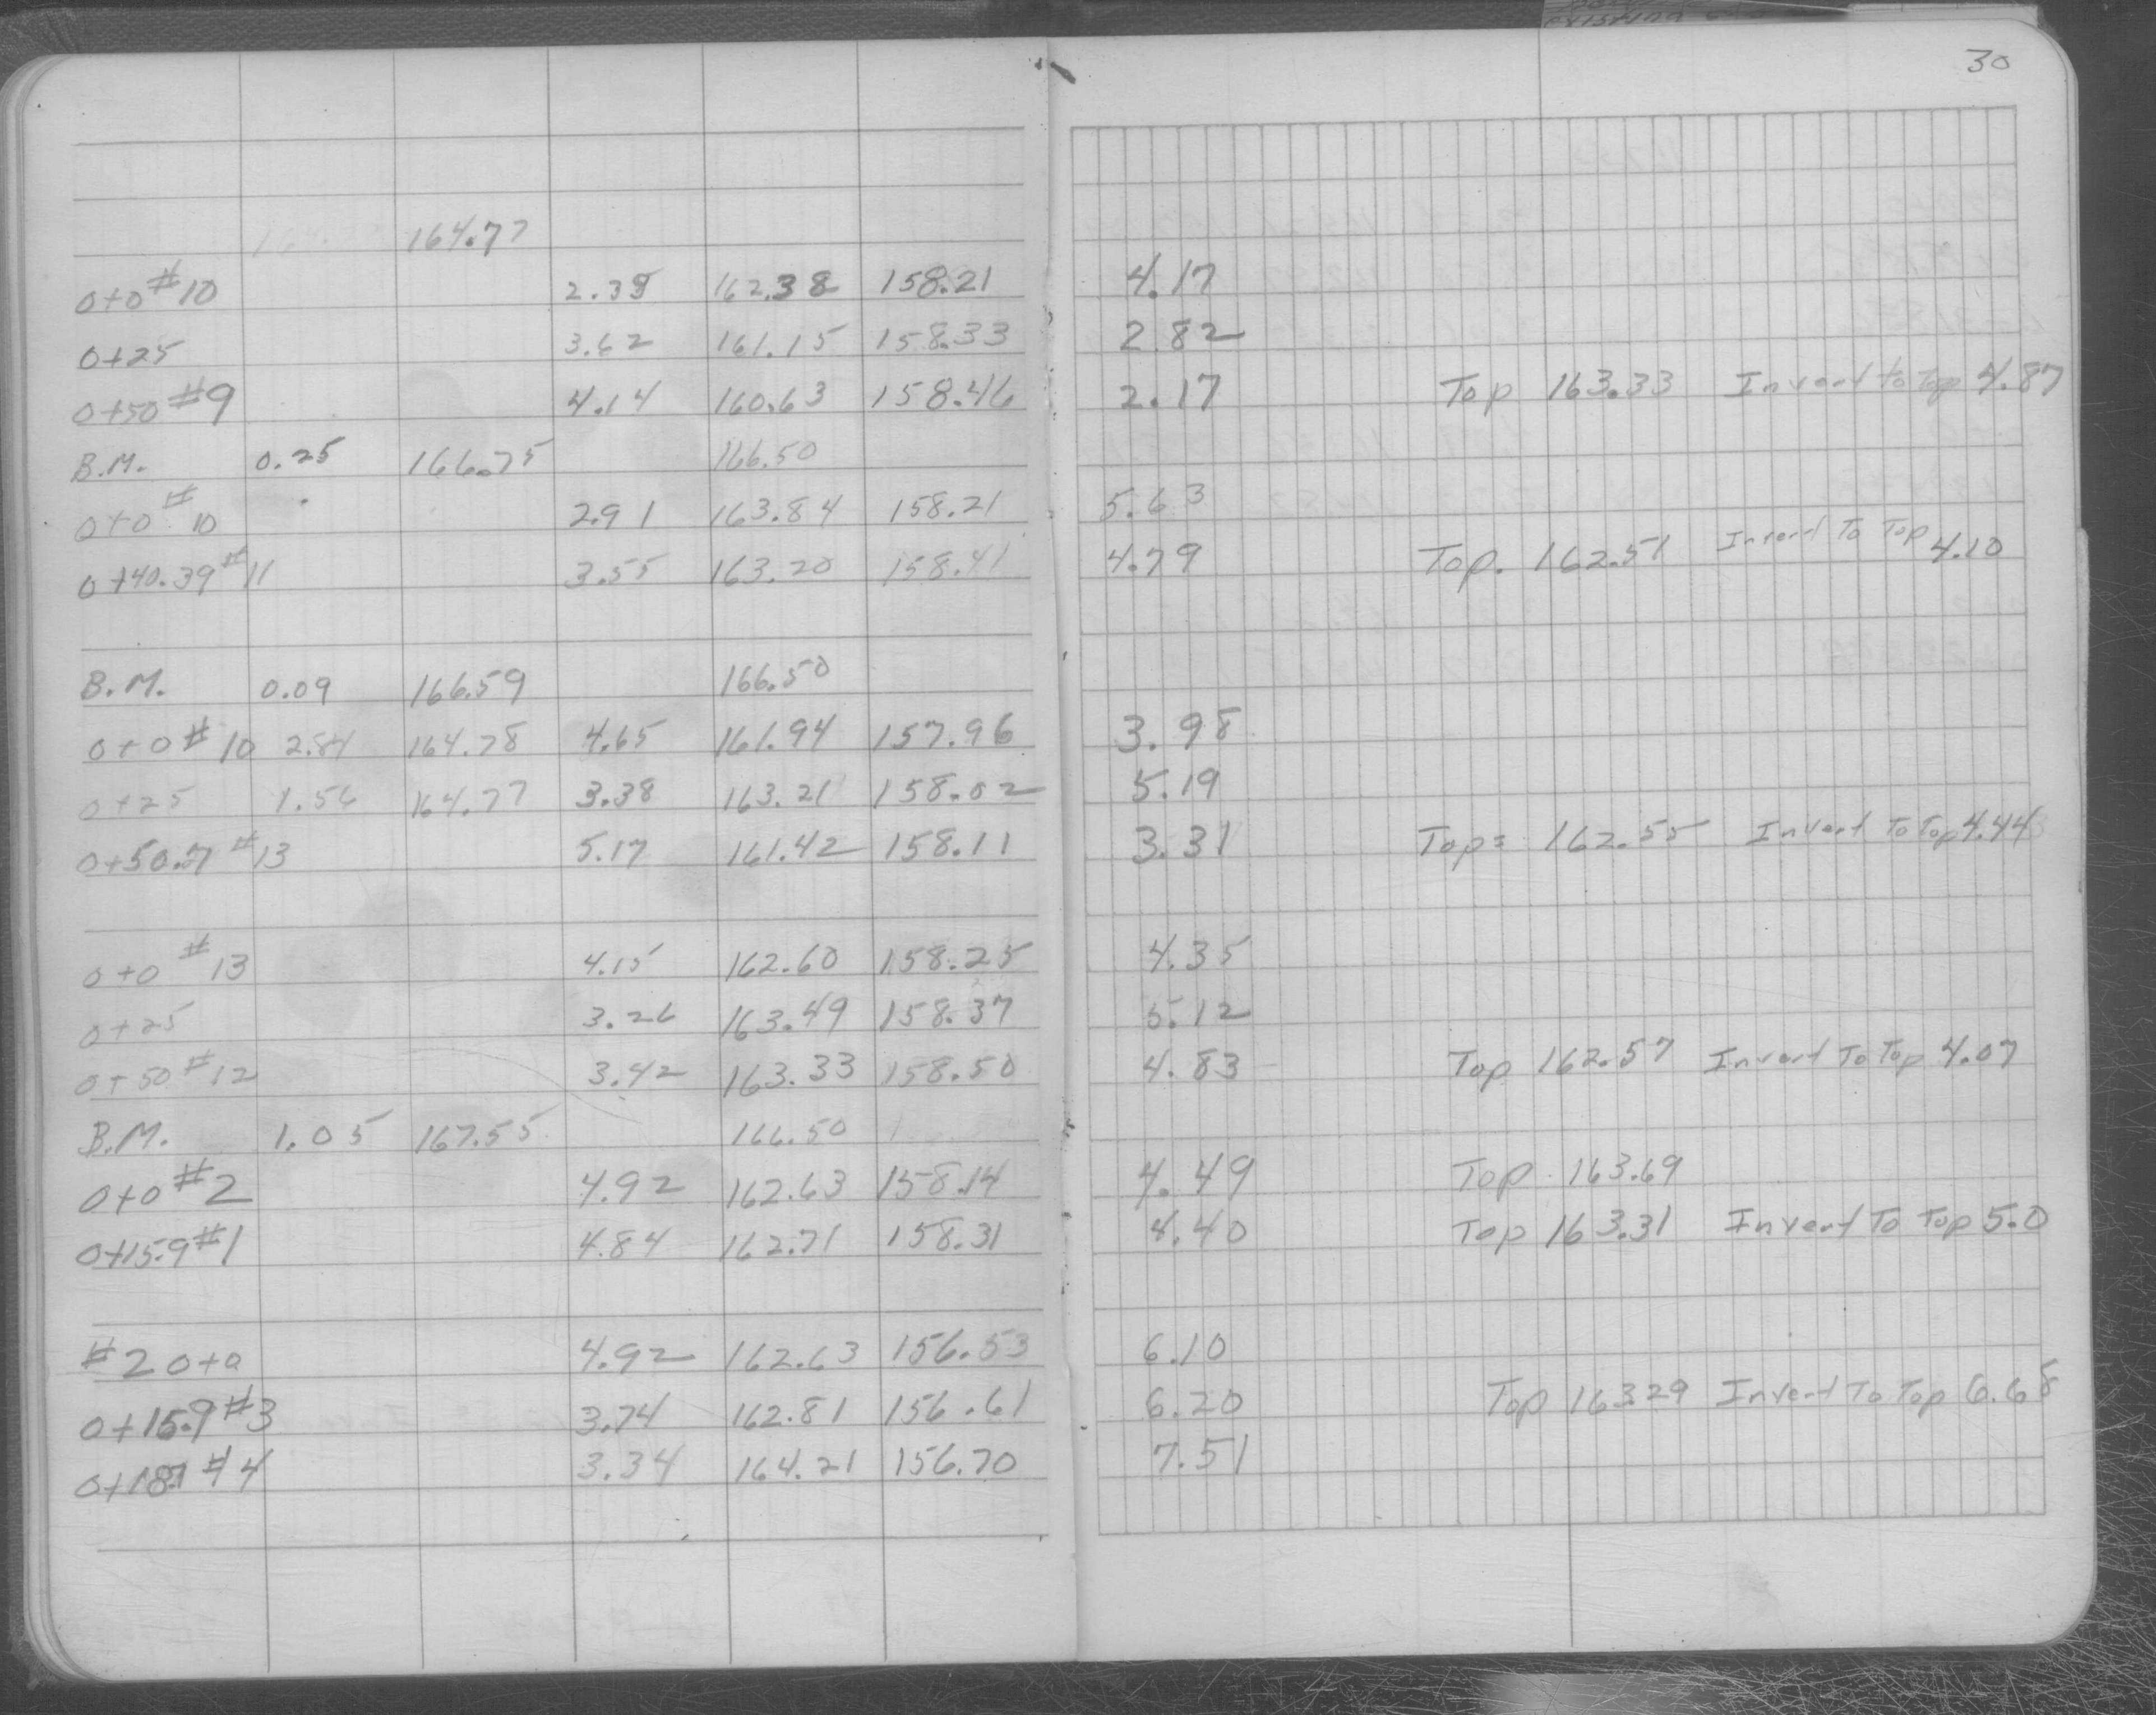 30
164.77
0+0 #10 2.39 162.38 158.21 4.17
0+25 3.62 161.15 158.33 2.82
0+50 #9 4.14 160.63 158.46 2.17 Top 163.33 Invert to Top 4.87
B.M. 0.25 166.75 166.50
0+0 #10 2.91 163.84 158.21 5.63
0+40.39 #11 3.55 163.20 158.41 4.79 Top. 162.51 Invert To Top 4.10
B.M. 0.09 166.59 166.50
0+0 #10 2.84 164.78 4.65 161.94 157.96 3.98
0+25 1.56 164.77 3.38 163.21 158.02 5.19
0+50.7 #13 5.17 161.42 158.11 3.31 Top= 162.55 Invert To Top 4.44
0+0 #13 4.15 162.60 158.25 4.35
0+25 3.26 163.49 158.37 5.12
0+50 #12 3.42 163.33 158.50 4.83 Top 162.57 Invert To Top 4.07
B.M. 1.05 167.55 166.50
0+0 #2 4.92 162.63 158.14 4.49 Top 163.69
0+15.9 #1 4.84 162.71 158.31 4.40 Top 163.31 Invert To Top 5.0
#2 0+0 4.92 162.63 156.53 6.10
0+15.9 #3 3.74 162.81 156.61 6.20 Top 163.29 Invert To Top 6.68
0+18.7 #4 3.34 164.21 156.70 7.51